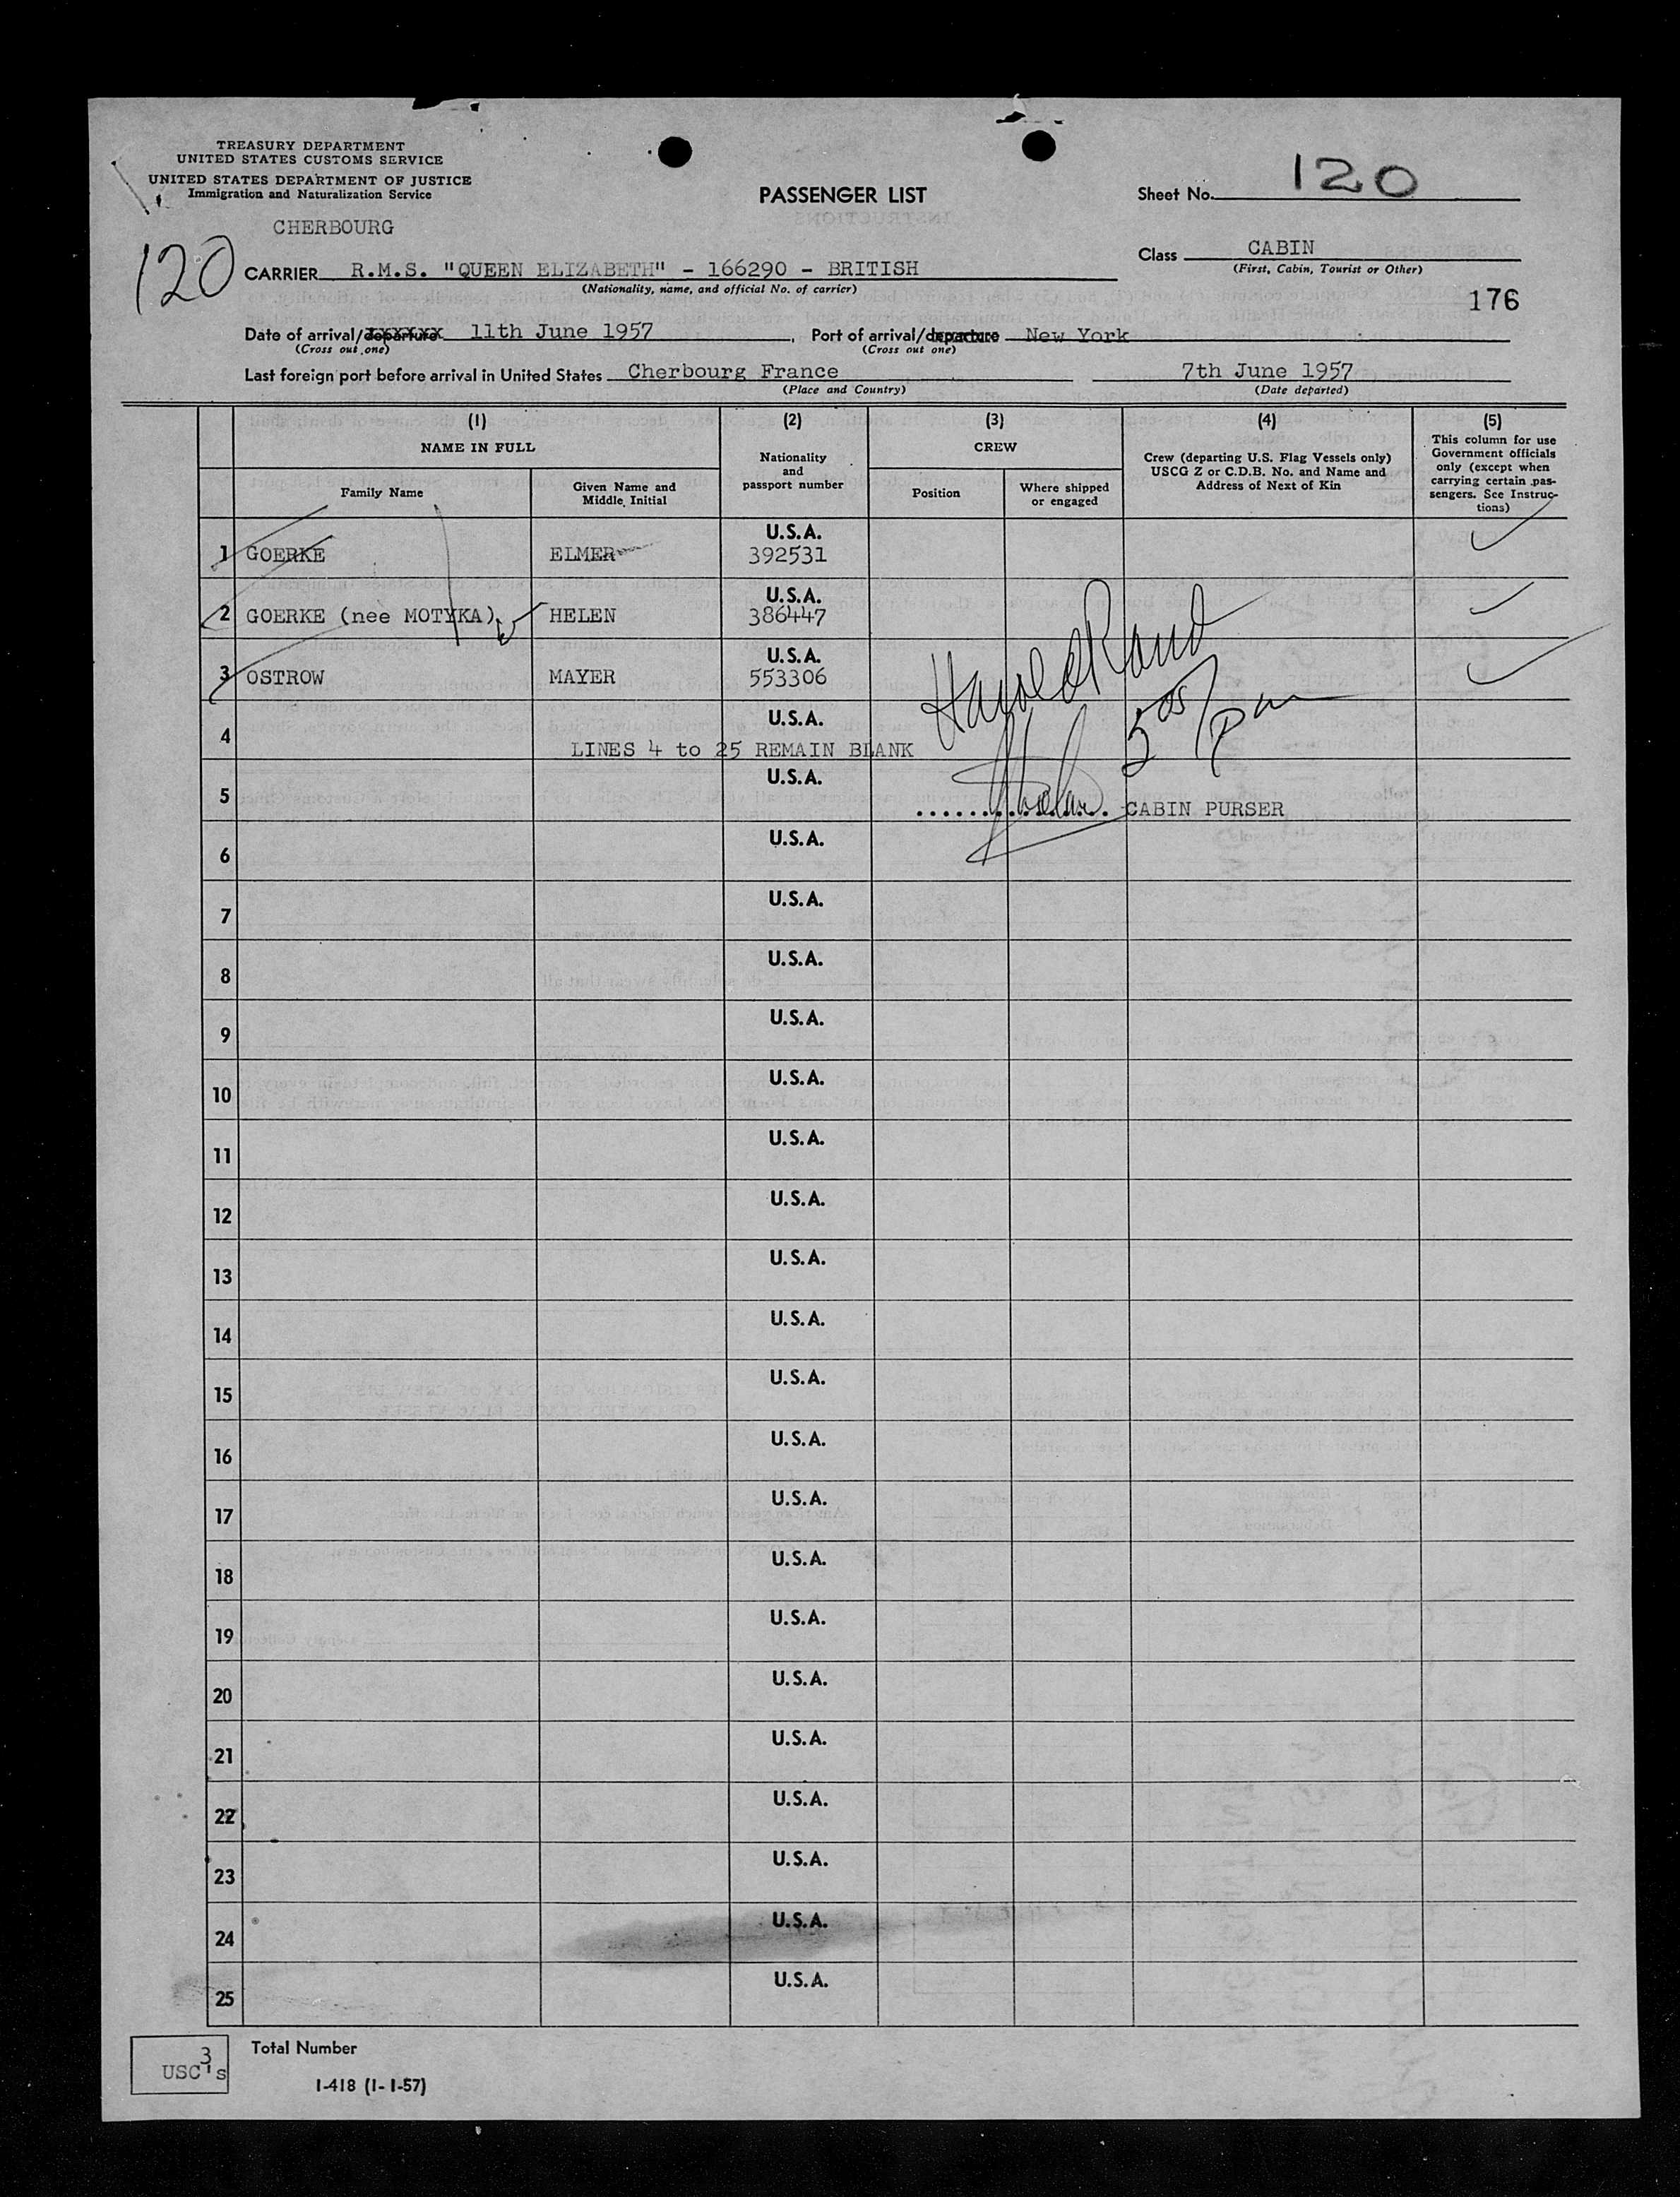 TREASURY DEPARTMENT
UNITED STATES CUSTOMS SERVICE
UNITED STATES DEPARTMENT OF JUSTICE
Immigration and Naturalization Service
PASSENGER LIST
Sheet No. 120
CHERBOURG
120
Class CABIN
(First, Cabin, Tourist or Other)
CARRIER R.M.S. "QUEEN ELIZABETH" - 166290 - BRITISH
(Nationality, name, and official No. of carrier)
176
Date of arrival/departure 11th June 1957 , Port of arrival/departure New York
(Cross out one) (Cross out one)
Last foreign port before arrival in United States Cherbourg France 7th June 1957
(Place and Country) (Date departed)
(1) (2) (3) (4) (5)
NAME IN FULL
Family Name
Given Name and
Middle Initial
Nationality
and
passport number
CREW
Position
Where shipped
or engaged
Crew (departing U.S. Flag Vessels only)
USCG Z or C.D.B. No. and Name and
Address of Next of Kin
This column for use
Government officials
only (except when
carrying certain pas-
sengers. See Instruc-
tions)
1 GOERKE ELMER U.S.A. 392531
2 GOERKE (nee MOTYKA) HELEN U.S.A. 386447
3 OSTROW MAYER U.S.A. 553306
Harold Rand
5 05/pm
4 U.S.A.
LINES 4 to 25 REMAIN BLANK
5 U.S.A.
CABIN PURSER
6 U.S.A.
7 U.S.A.
8 U.S.A.
9 U.S.A.
10 U.S.A.
11 U.S.A.
12 U.S.A.
13 U.S.A.
14 U.S.A.
15 U.S.A.
16 U.S.A.
17 U.S.A.
18 U.S.A.
19 U.S.A.
20 U.S.A.
21 U.S.A.
22 U.S.A.
23 U.S.A.
24 U.S.A.
25 U.S.A.
3
USC's
Total Number
I-418 (1-1-57)